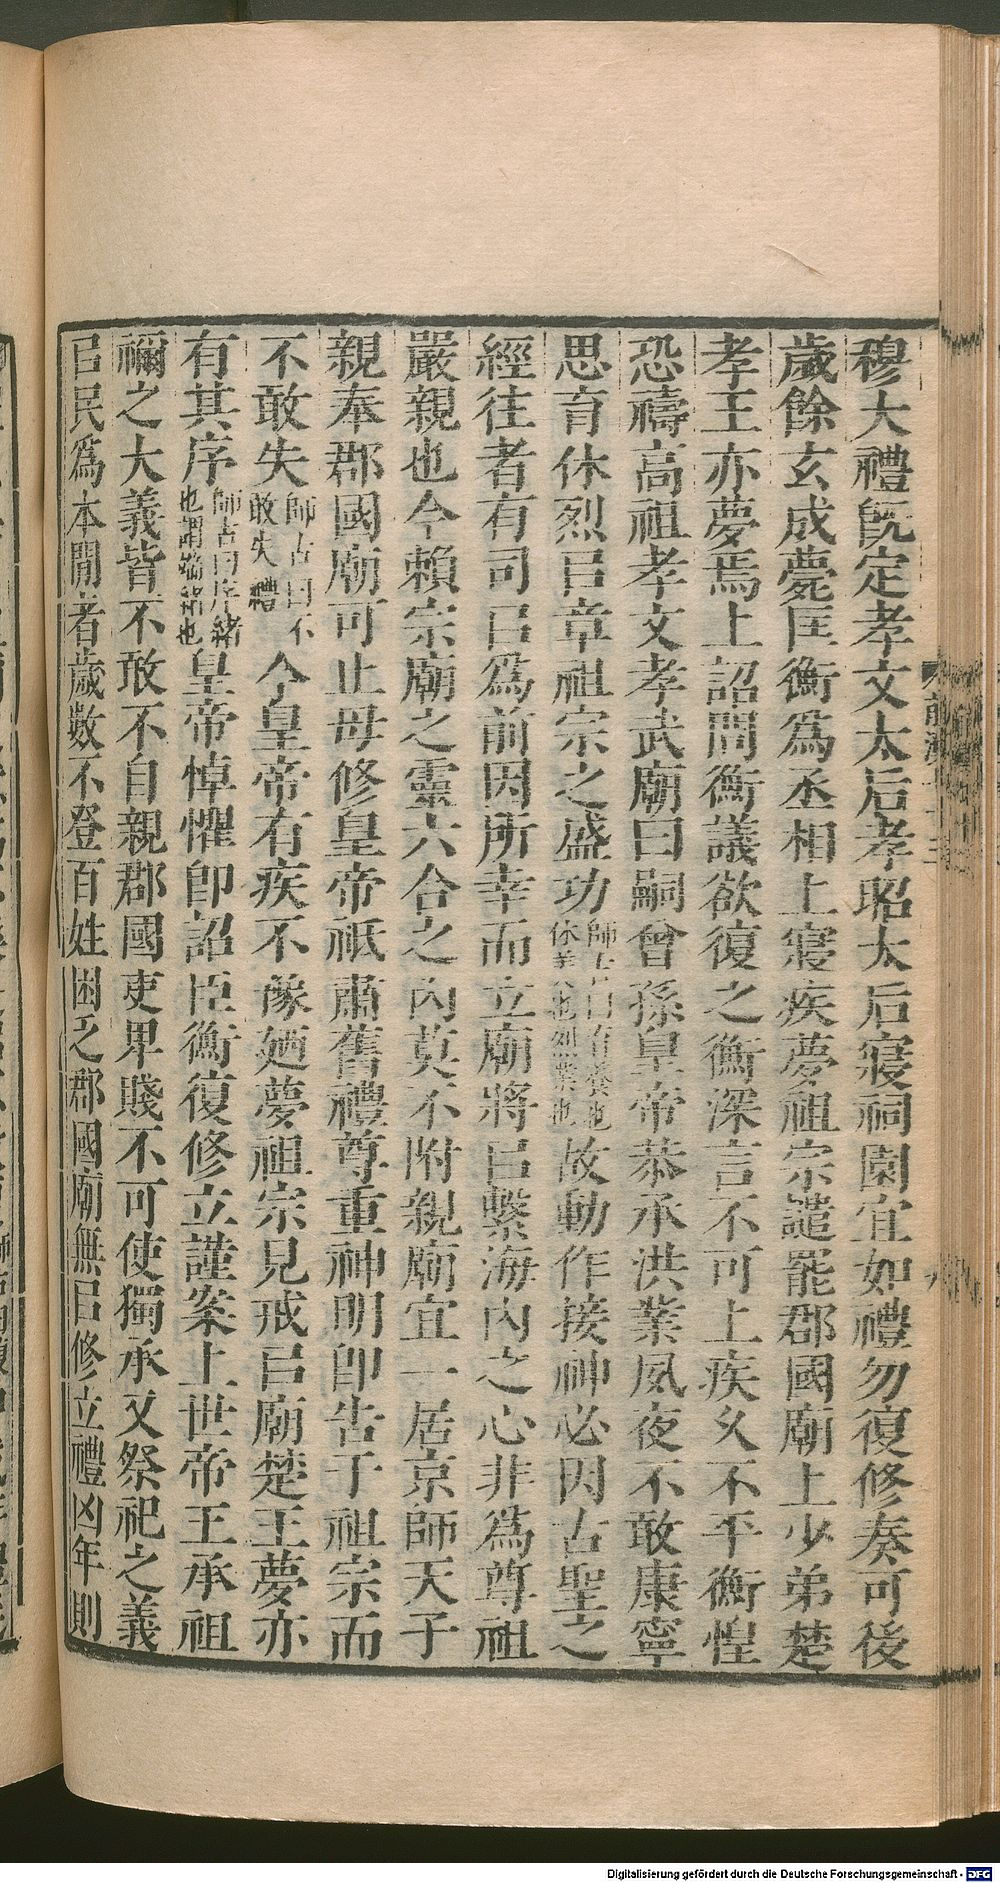 穆大禮旣定孝文太后孝昭太后寢祠園宜如禮勿復修奏可後
歲餘玄成薨匡衡爲丞相上寢疾夢祖宗譴罷郡國廟上少弟楚
孝王亦夢焉上詔問衡議欲復之衡深言不可上疾久不平衡惶
恐禱高祖孝文孝武廟曰嗣曾孫皇帝恭承洪業夙夜不敢康寧
思育休烈㠯章祖宗之盛功師古曰育養也休美也烈業也故動作接神必因古聖之
經往者有司㠯爲前因所幸而立廟將㠯繫海內之心非爲尊祖
嚴親也今賴宗廟之靈六合之內莫不附親廟宜一居京師天子
親奉郡國廟可止毋修皇帝祇肅舊禮尊重神明卽告于祖宗而
不敢失師古曰不敢失禮今皇帝有疾不豫廼夢祖宗見戒㠯廟楚王夢亦
有其序師古曰序緒也謂端緒也皇帝悼懼卽詔臣衡復修立謹案上世帝王承祖
禰之大義皆不敢不自親郡國吏卑賤不可使獨承又祭祀之義
㠯民爲本閒者歲數不登百姓困乏郡國廟無㠯修立禮凶年則
Digitalisierung gefördert durch die Deutsche Forschungsgemeinschaft - DFG